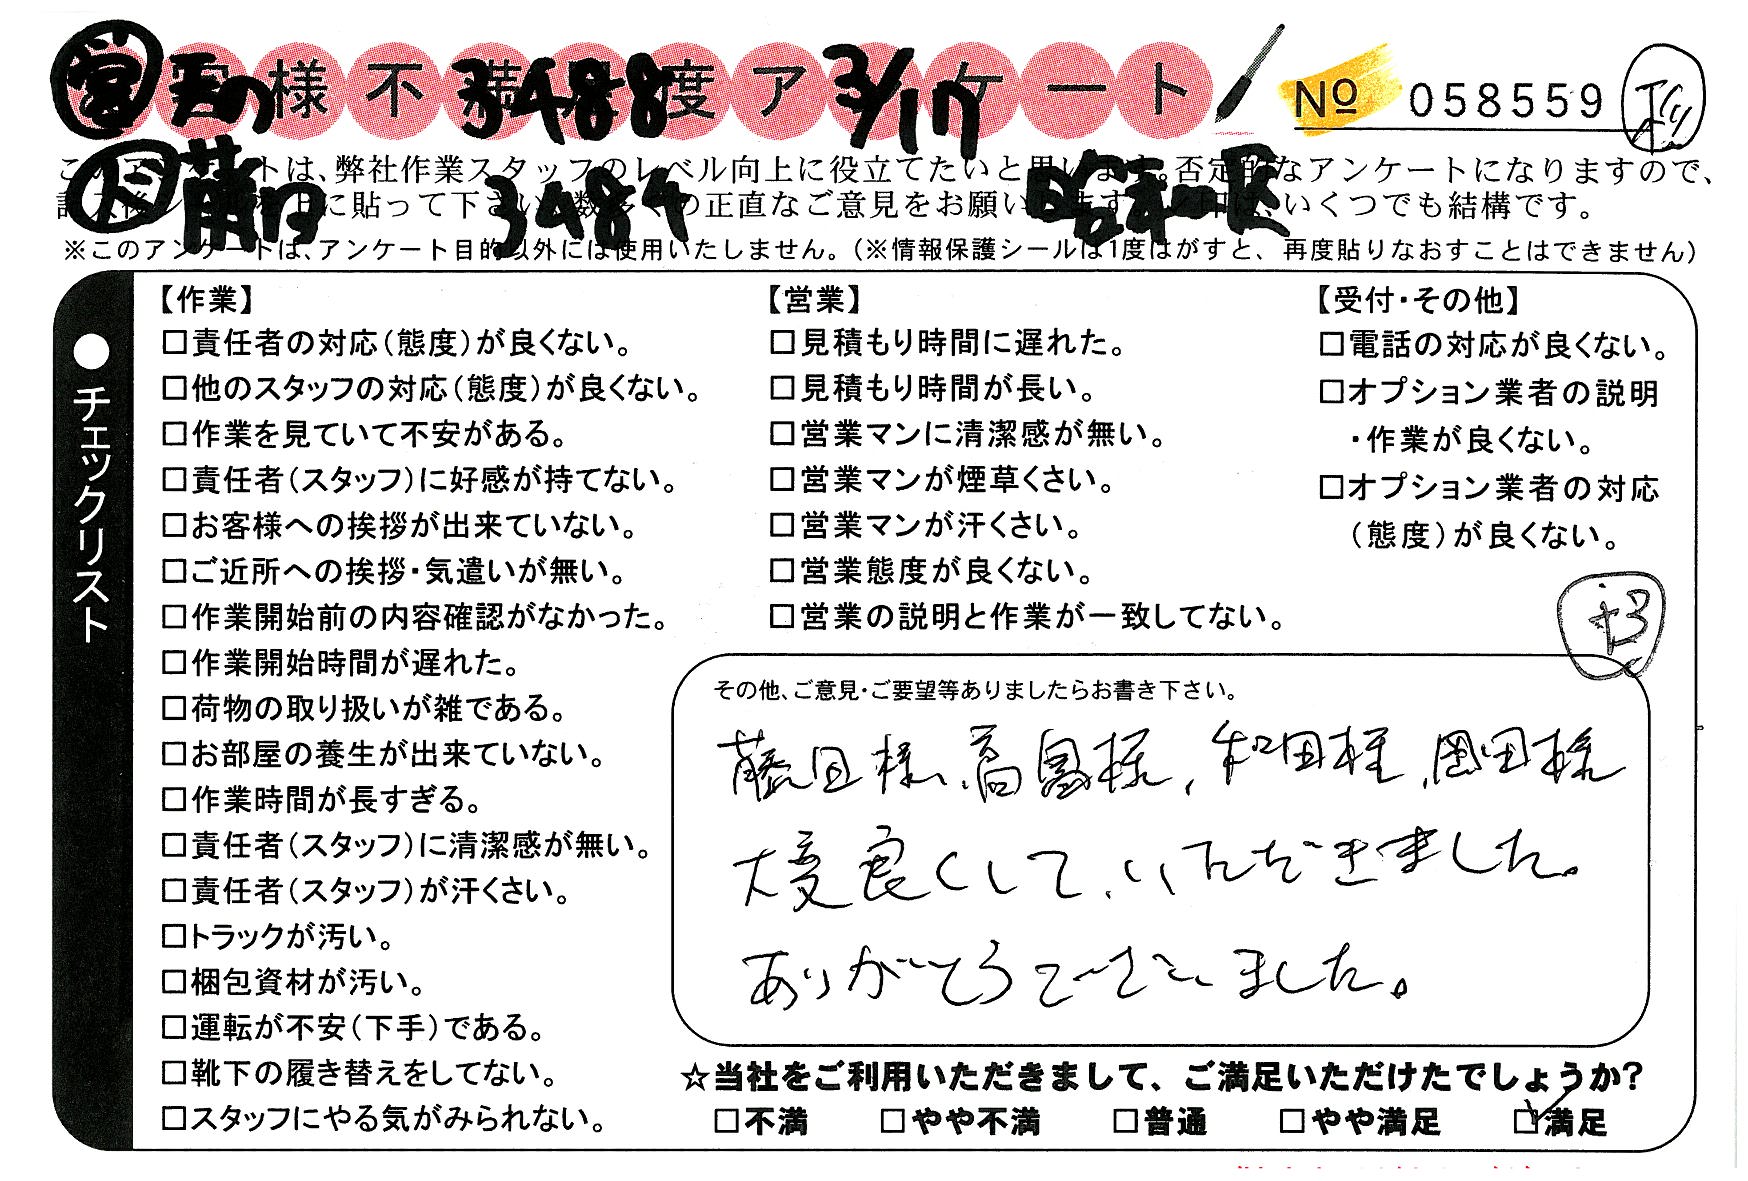 お客様不満足度アンケート
3488 3/17
№ 058559
このアンケートは、弊社作業スタッフのレベル向上に役立てたいと思います。否定的なアンケートになりますので、
3484 昭和区
に貼って下さい。数多くの正直なご意見をお願いします。 いくつでも結構です。
※このアンケートは、アンケート目的以外には使用いたしません。(※情報保護シールは1度はがすと、再度貼りなおすことはできません)
●チェックリスト
【作業】
□責任者の対応(態度)が良くない。
□他のスタッフの対応(態度)が良くない。
□作業を見ていて不安がある。
□責任者(スタッフ)に好感が持てない。
□お客様への挨拶が出来ていない。
□ご近所への挨拶・気遣いが無い。
□作業開始前の内容確認がなかった。
□作業開始時間が遅れた。
□荷物の取り扱いが雑である。
□お部屋の養生が出来ていない。
□作業時間が長すぎる。
□責任者(スタッフ)に清潔感が無い。
□責任者(スタッフ)が汗くさい。
□トラックが汚い。
□梱包資材が汚い。
□運転が不安(下手)である。
□靴下の履き替えをしてない。
□スタッフにやる気がみられない。
【営業】
□見積もり時間に遅れた。
□見積もり時間が長い。
□営業マンに清潔感が無い。
□営業マンが煙草くさい。
□営業マンが汗くさい。
□営業態度が良くない。
□営業の説明と作業が一致してない。
【受付・その他】
□電話の対応が良くない。
□オプション業者の説明
・作業が良くない。
□オプション業者の対応
(態度)が良くない。
その他、ご意見・ご要望等ありましたらお書き下さい。
藤田様、高島様、和田様、岡田様
大変良くして、いただきました。
ありがとうございました。
☆当社をご利用いただきまして、ご満足いただけたでしょうか?
□不満 □やや不満 □普通 □やや満足 ☑満足